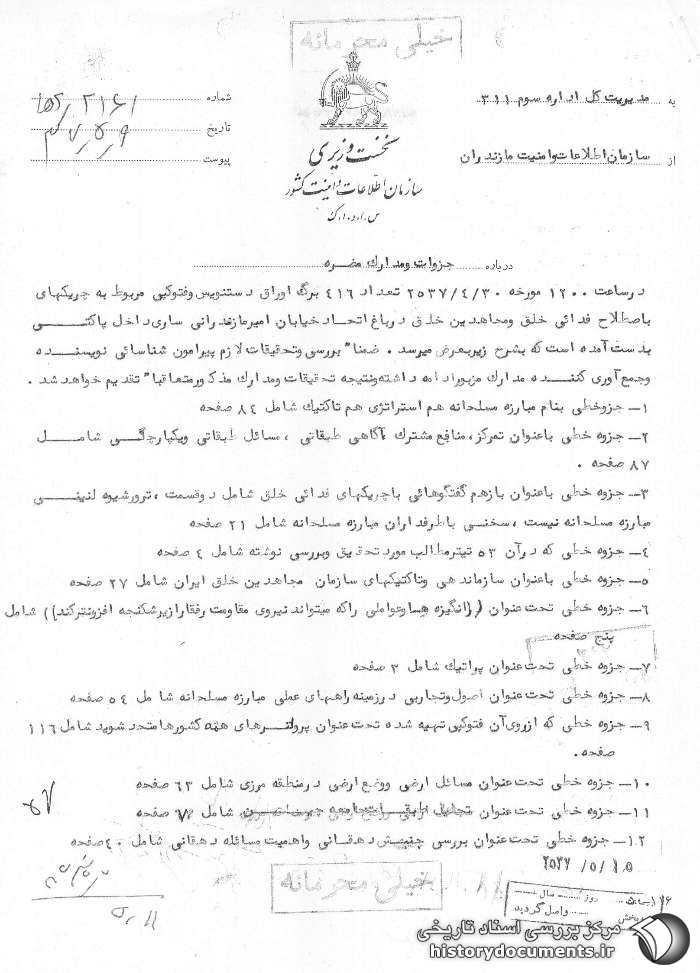 خیلی محرمانه
به مدیریت کل اداره سوم ۳۱۱
شماره
از سازمان اطلاعات وامنیت مازندران
تاریخ
پیوست
نخست وزیری
سازمان اطلاعات و امنیت کشور
س.ا.و.ا.ک
درباره جزوات ومدارك مضره
درساعت ۱۲۰۰ مورخه ۲۵۳۷/۴/۳۰ تعداد ۴۱۶ برگ اوراق دستنویس وفتوکپی مربوط به چریکهای
باصطلاح فدائی خلق ومجاهدین خلق درباغ اتحاد خیابان امیرمازندرانی ساری داخل پاکتی
بدست آمده است که بشرح زیربعرض میرسد . ضمنا" بررسی وتحقیقات لازم پیرامون شناسائی نویسنده
وجمع آوری کننده مدارك مزبورادامه داشته ونتیجه تحقیقات ومدارك مذکورمتعاقبا" تقدیم خواهدشد .
۱- جزوخطی بنام مبارزه مسلحانه هم استراتژی هم تاکتیك شامل ۸۴ صفحه
۲- جزوه خطی باعنوان تمرکز، منافع مشترك آگاهی طبقاتی ، مسائل طبقاتی ویکپارچگی شامل
۸۷ صفحه .
۳- جزوه خطی باعنوان بازهم گفتگوهائی باچریکهای فدائی خلق شامل دوقسمت ، ترورشیوه لنینی
مبارزه مسلحانه نیست ، سخنی باطرفداران مبارزه مسلحانه شامل ۲۱ صفحه
۴- جزوه خطی که درآن ۵۳ تیترمطالب مورد تحقیق وبررسی نوشته شامل ۴ صفحه
۵- جزوه خطی باعنوان سازماندهی وتاکتیکهای سازمان مجاهدین خلق ایران شامل ۲۷ صفحه
۶- جزوه خطی تحت عنوان ((انگیزه هاوعواملی راکه میتواند نیروی مقاومت رفقارازیرشکنجه افزونترکند)) شامل
پنج صفحه
۷- جزوه خطی تحت عنوان پراتیك شامل ۳ صفحه
۸- جزوه خطی تحت عنوان اصول وتجاربی درزمینه راههای عملی مبارزه مسلحانه شامل ۵۴ صفحه
۹- جزوه خطی که ازروی آن فتوکپی تهیه شده تحت عنوان پرولترهای همه کشورهامتحد شوید شامل ۱۱۶
صفحه.
۱۰- جزوه خطی تحت عنوان مسائل ارضی ووضع ارضی درمنطقه مرزی شامل ۶۳ صفحه
۱۱- جزوه خطی تحت عنوان تحلیل طبقات جامعه شامل صفحه
۱۲- جزوه خطی تحت عنوان بررسی جنبش دهقانی واهمیت مسائله دهقانی شامل ۴۰ صفحه
۲۵۳۷/۵/۱۵
خیلی محرمانه
روز سال
واصل گردید
مرکز بررسی اسناد تاریخی
historydocuments.ir